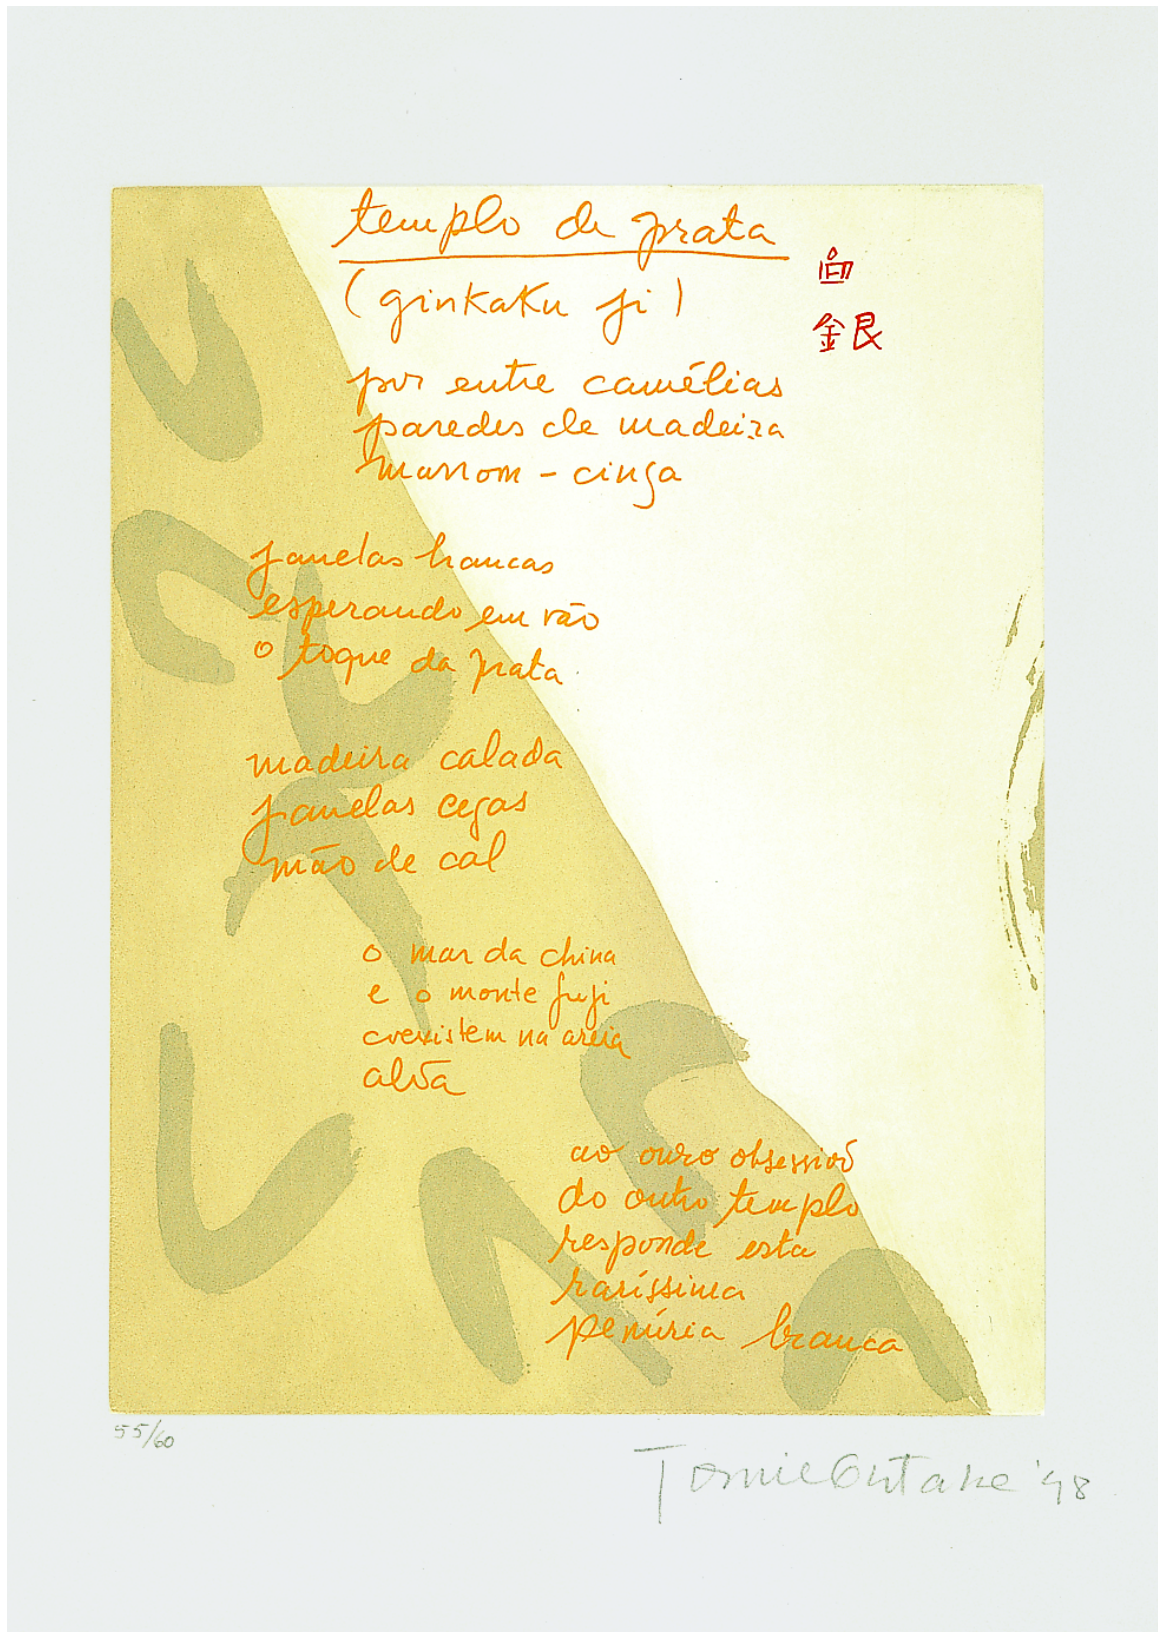 templo de prata
(ginkaku ji)
銀
por entre camélias
paredes de madeira
marrom - cinza
janelas brancas
esperando em vão
o toque da prata
madeira calada
janelas cegas
mão de cal
o mar da china
e o monte fuji
coexistem na areia
alva
ao ouro obsessivo
do outro templo
responde esta
raríssima
penúria branca
55/60
Tomie Ohtake '98